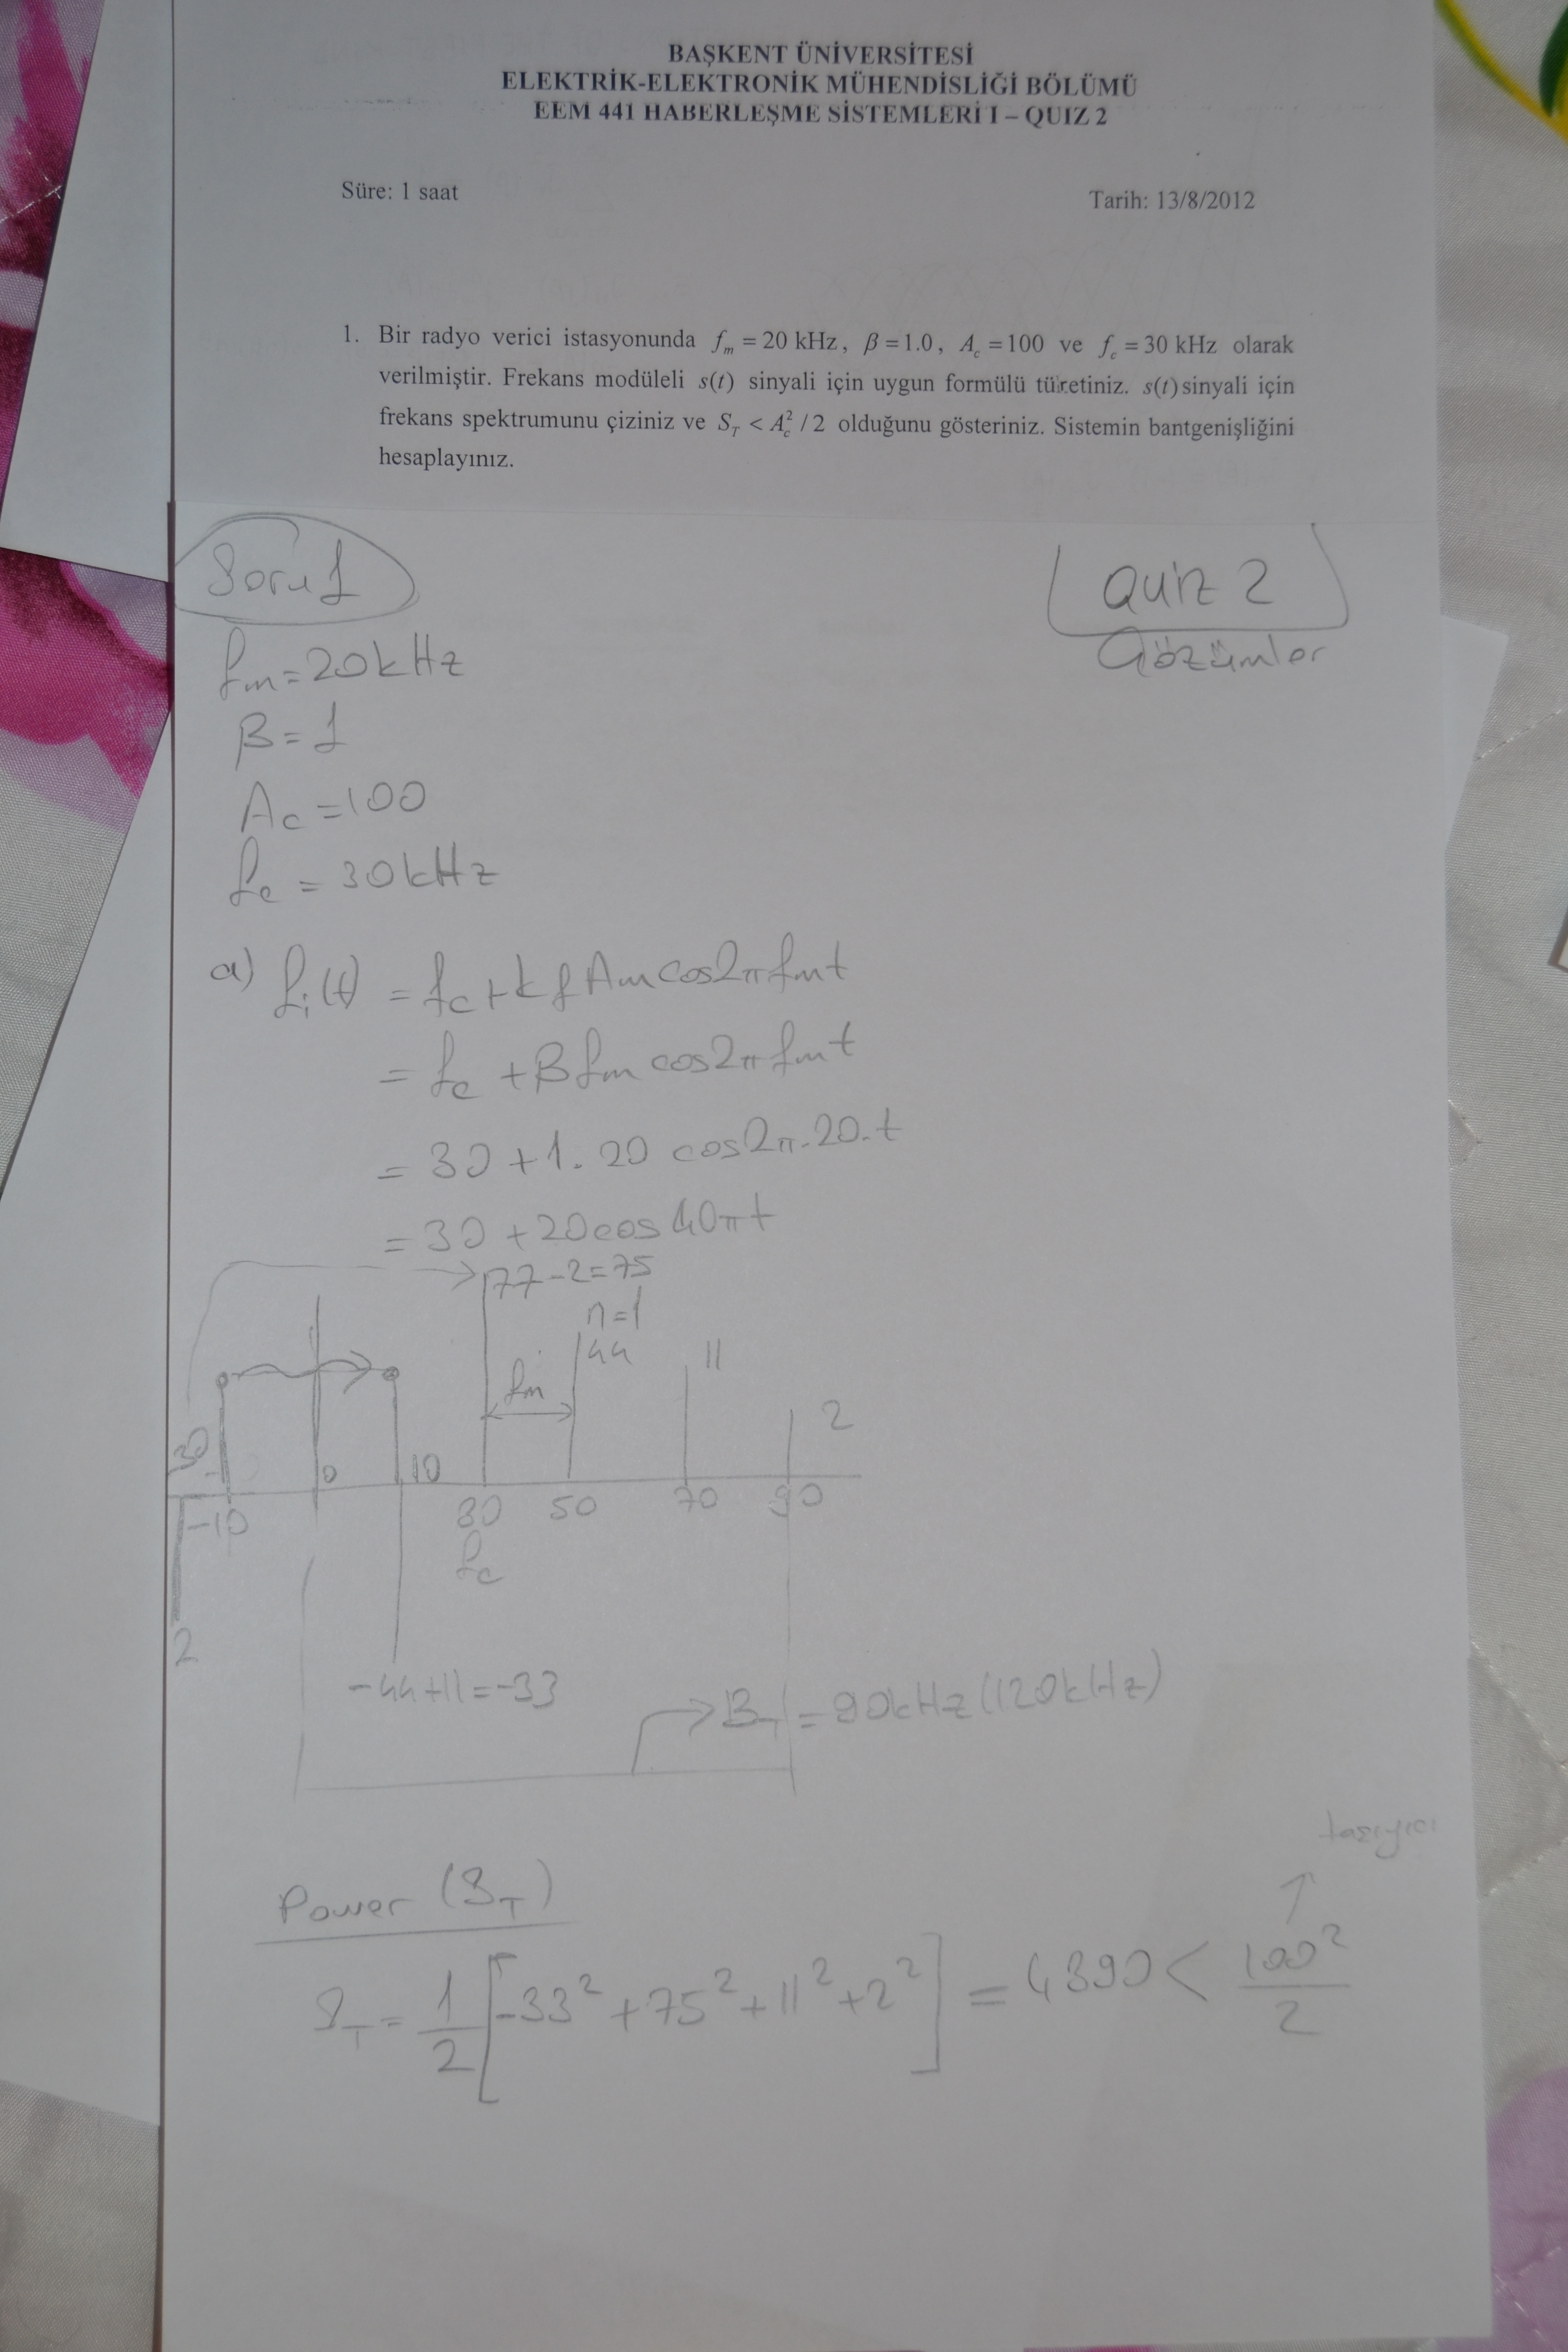 BAŞKENT ÜNİVERSİTESİ
ELEKTRİK-ELEKTRONİK MÜHENDİSLİĞİ BÖLÜMÜ
EEM 441 HABERLEŞME SİSTEMLERİ I – QUIZ 2
Süre: 1 saat
Tarih: 13/8/2012
1. Bir radyo verici istasyonunda f_m = 20 kHz, β = 1.0, A_c = 100 ve f_c = 30 kHz olarak
verilmiştir. Frekans modüleli s(t) sinyali için uygun formülü türetiniz. s(t) sinyali için
frekans spektrumunu çiziniz ve S_T < A_c^2 / 2 olduğunu gösteriniz. Sistemin bantgenişliğini
hesaplayınız.
Soru 1
Quiz 2
Çözümler
f_m = 20 kHz
β = 1
A_c = 100
f_c = 30 kHz
a) f_i(t) = f_c + k_f A_m cos2π f_m t
= f_c + β f_m cos2π f_m t
= 30 + 1. 20 cos2π.20.t
= 30 + 20 cos 40πt
77-2=75
n=1
44
11
f_m
2
30
-10
0
10
30
50
70
90
f_c
2
-44+11=-33
B_T = 90kHz (120kHz)
taşıyıcı
Power (S_T)
S_T = 1/2 [-33² + 75² + 11² + 2²] = 4390 < 100²/2